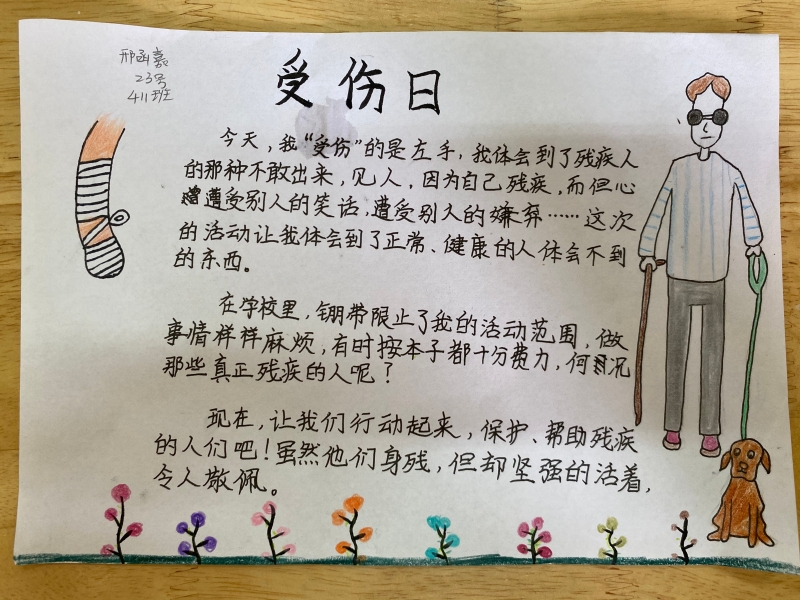 邢函嘉
23号
411班
受伤日
今天，我“受伤”的是左手，我体会到了残疾人
的那种不敢出来，见人，因为自己残疾，而但心
遭受别人的笑话，遭受别人的嫌弃……这次
的活动让我体会到了正常、健康的人体会不到
的东西。
在学校里，绷带限止了我的活动范围，做
事情样样麻烦，有时按本子都十分费力，何况
那些真正残疾的人呢？
现在，让我们行动起来，保护、帮助残疾
的人们吧！虽然他们身残，但却坚强的活着，
令人敬佩。